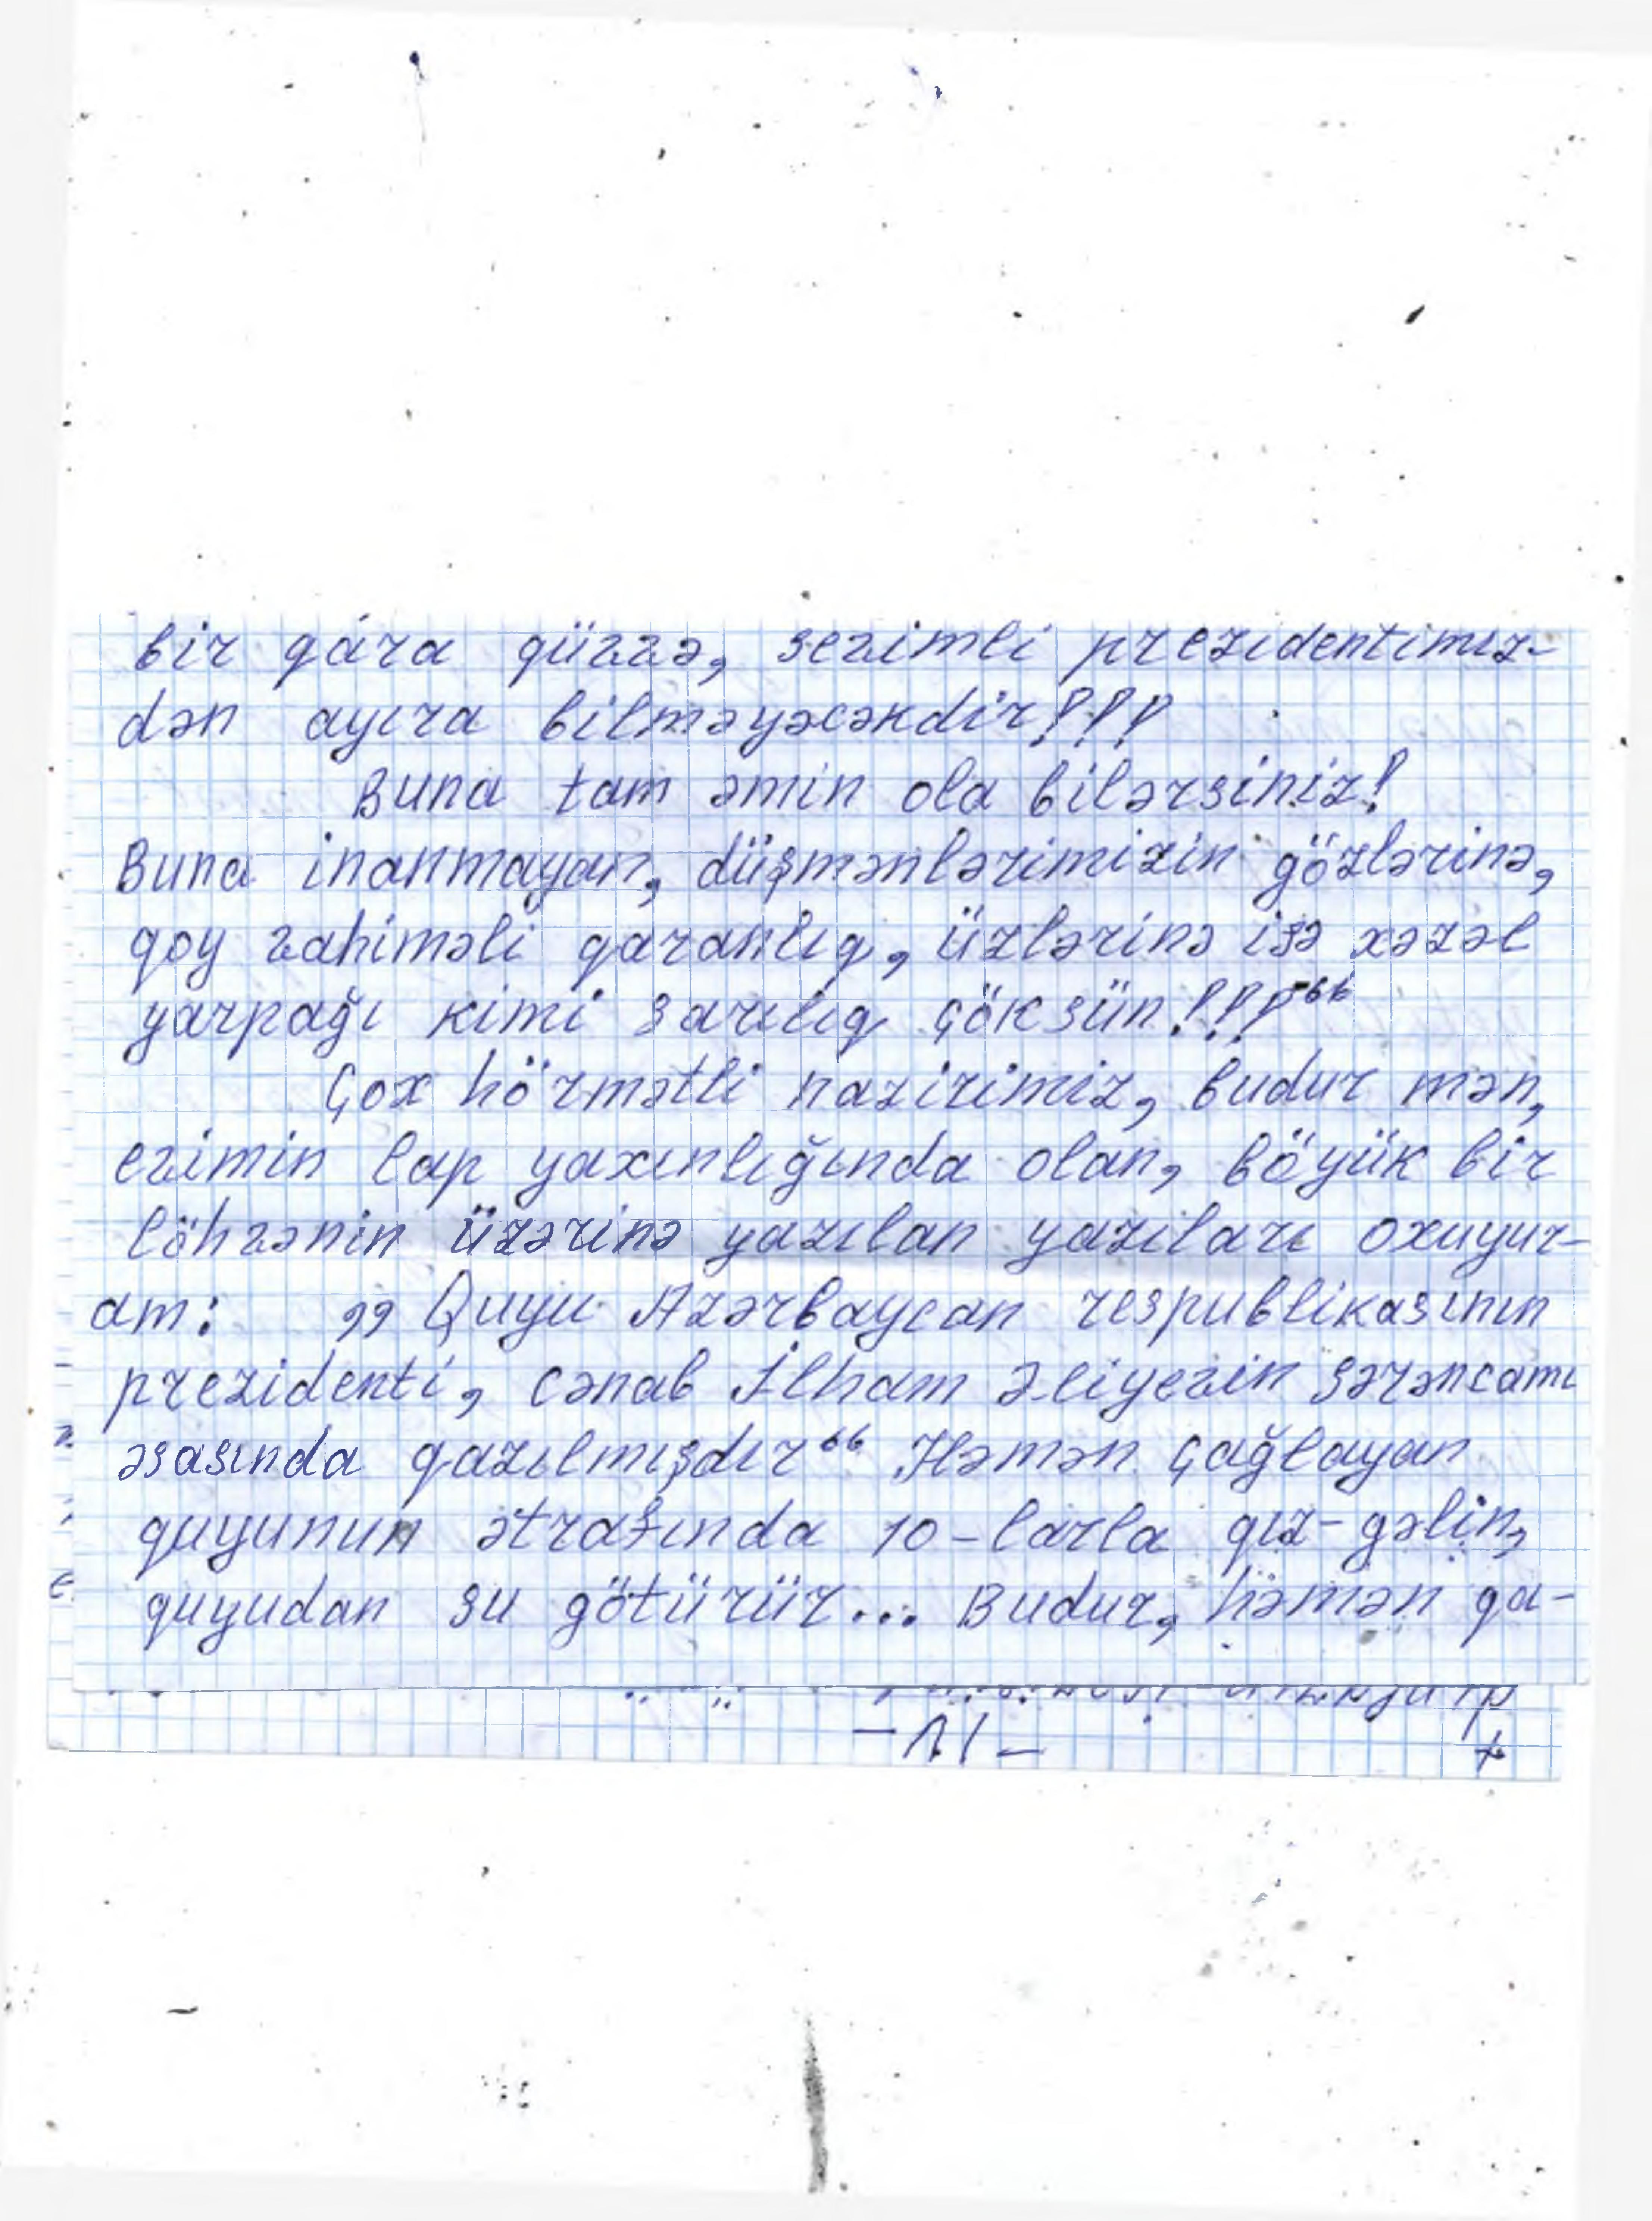 bir qara qüvvə, sevimli prezidentimiz-
dən ayıra bilməyəcəkdir!!!
Buna tam əmin ola bilərsiniz!
Buna inanmayan, düşmənlərimizin gözlərinə,
qoy vahiməli qaranlıq, üzlərinə isə xəzəl
yarpağı kimi sarılıq çöksün!!!“
Çox hörmətli nazirimiz, budur mən,
evimin lap yaxınlığında olan, böyük bir
löhvənin üzərinə yazılan yazıları oxuyur-
am: „Quyu Azərbaycan respublikasının
prezidenti, cənab İlham Əliyevin sərəncamı
əsasında qazılmışdır“ Həmən çağlayan
quyunun ətrafında 10-larla qız-gəlin,
quyudan su götürür... Budur, həmən qa-